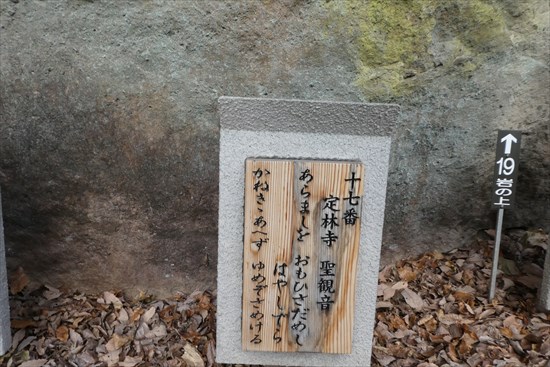 十七番
定林寺 聖観音
あらましを おもひさだめし
はやしでら
かねきゝあへず ゆめぞさめける
↑
19
岩の上